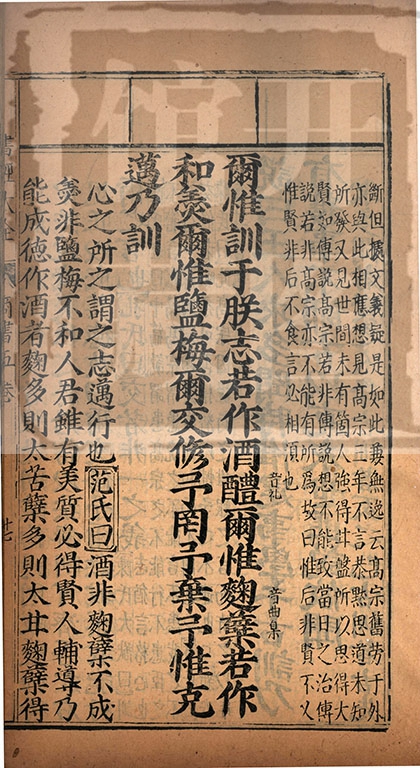 斷但據文義疑是如此兼無逸云高宗舊勞于外
亦與此相應想見高宗三年不言恭默思道未知
所發又見世間未有箇人強得甘盤所以思得大
賢如傳說高宗若非傳說想不能致當日之治傳
說若非高宗亦不能有所爲故曰惟后非賢不乂
惟賢非后不食言必相須也
爾惟訓于朕志若作酒醴爾惟麴糵若作
音礼
音曲臬
和羹爾惟鹽梅爾交修予罔予棄予惟克
邁乃訓
心之所之謂之志邁行也范氏曰酒非麴糵不成
羹非鹽梅不和人君雖有美質必得賢人輔導乃
能成德作酒者麴多則太苦糵多則太甘麴糵得